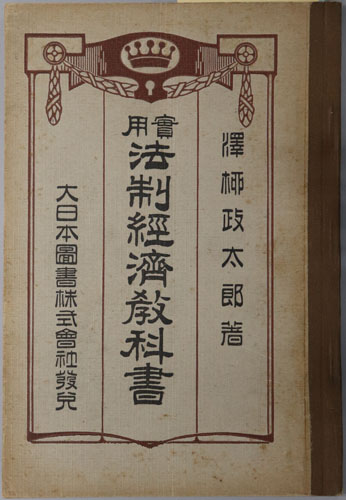 澤柳政太郎著
實用
法制經濟教科書
大日本圖書株式會社發兌